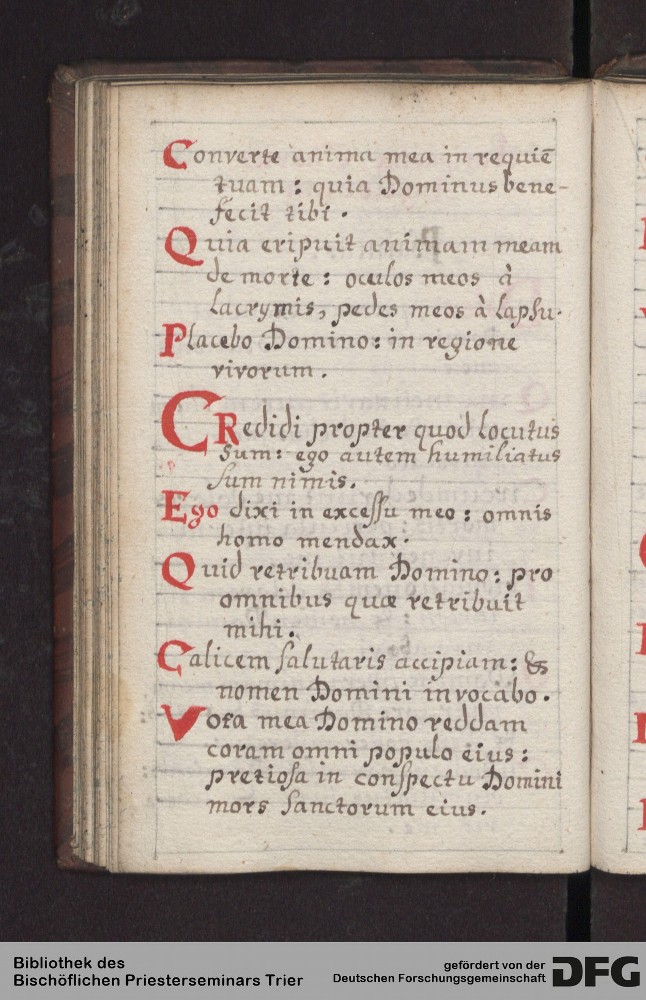 Converte anima mea in requiē
tuam : quia Dominus bene-
fecit tibi .
Quia eripuit animam meam
de morte : oculos meos à
lacrymis, pedes meos à lapsu.
Placebo Domino : in regione
vivorum .
CRedidi propter quod locutus
Sum : ego autem humiliatus
sum nimis .
Ego dixi in excessu meo : omnis
homo mendax .
Quid retribuam Domino : pro
omnibus quæ retribuit
mihi .
Calicem salutaris accipiam : &
nomen Domini invocabo .
Vota mea Domino reddam
coram omni populo eius :
pretiosa in conspectu Domini
mors sanctorum eius .
Bibliothek des
Bischöflichen Priesterseminars Trier
gefördert von der
Deutschen Forschungsgemeinschaft
DFG